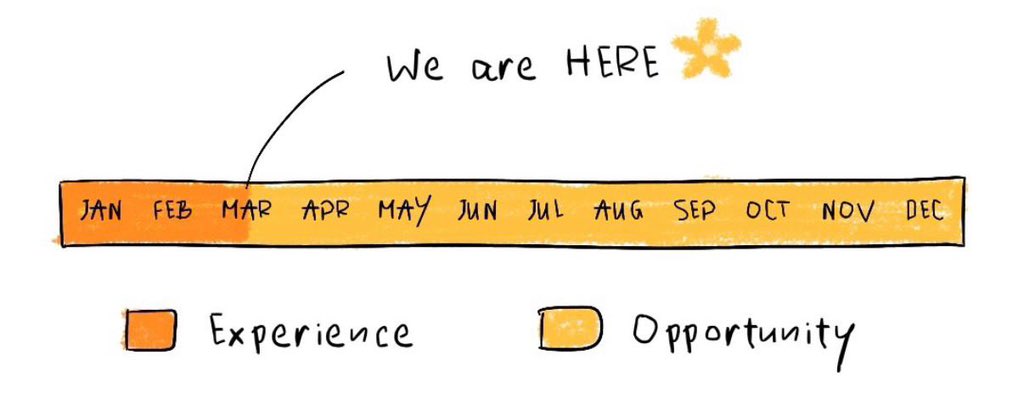 We are HERE
JAN FEB MAR APR MAY JUN JUL AUG SEP OCT NOV DEC
Experience Opportunity